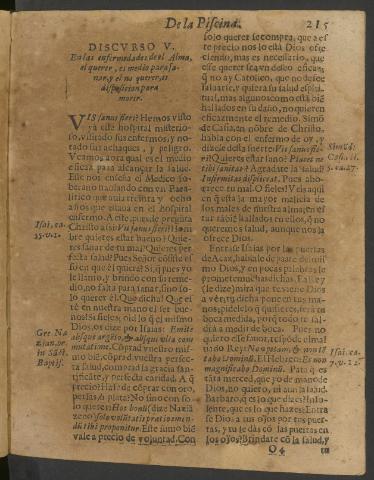 De la Piscina. 215
DISCVRSO V.
En las enfermedades de el Alma,
el querer, es medio para sa-
nar, y el no querer, es
disposicion para
morir.
VIS sanus fieri? Hemos visto
ya este hospital misterio-
so, visitado sus enfermos, y no-
tado sus achaques, y peligro.
Veamos aora qual es el medio
eficaz para alcançar la salud.
Este nos enseña el Medico so-
berano hablando con vn Para-
litico que auia treinta y ocho
años que estaua en el hospital
enfermo. A este, pues, le pregunta
Christo assi: Vis sanus fieri? Hom
bre quieres estar bueno? Quie-
res sanar de tu mal? Quieres per
fecta salud? Pues Señor consiste es
so en que èl quiera? Si, q̃ pues yo
le llamo, y brindo con su reme-
dio, no falta para sanar, sino so-
lo querer èl. Que dicha! Que es
tè en nuestra mano el ser bue-
nos! Si fieles; oid lo q̃ el mismo
Dios, os dize por Isaias: Emite
absque argẽto, & aliqua vita com
mutatione. Cõprad vuestro mis-
mo biẽ, cõprad vuestra perfec-
ta salud, comprad la gracia san-
tificante, y perfecta caridad. A q̃
precio? Ha se de cõprar con oro,
perlas, ò plata? No sino con so-
lo querer? Hoc bonũ (dize Naziã
zeno) sola voluntatis pratio emen-
dũ tibi proponitur. Este sumo biẽ
vale a precio de voluntad. Con
Isai. ca.
55. v. 1.
Gre. Na
zian. or.
in Sãct.
Baptis.
solo querer se compra, que a es
te precio nos lo està Dios ofre
ciendo, mas es necessario, que
esse querer sea vn deseo eficaz;
q̃ no ay Catolico, que no desee
saluarse, y quiera su salud espiri-
tual, mas algunos como està biẽ
hallados en su daño, no quieren
eficazmente el remedio. Simõ
de Casia, en nõbre de Christo,
habla con el enfermo de oy, y
dizele desta suerte: Vis sanus fie-
ri? Quieres estar sano? Placet ne
tibi sanitas? Agradate la salud?
Infirmitas displicet. Pues abo-
rrece tu mal. O fieles! Veis aqui
en que està la mayor malicia de
los males de nuestra alma; en es
tar tã biẽ hallados en ellos, q̃ no
queremos salud, aunque nos la
ofrece Dios.
Entrase Isaias por las puertas
de Acaz, hablale de parte del mis
mo Dios, y en pocas palabras le
promete muchas dichas. Ea Rey
(le dize) mira que te viene Dios
a vèr, tu dicha pone en tus ma-
nos; pidele lo q̃ quisieres, terà tu
boca medida, porq̃ todo te sal-
drà a medida de boca. Pues no
quiero esse fauor, respõde el mal
uado Rey: No a petam, & non tẽ
tabo Dominũ. El Hebreo: Et non
magnificabo Dominũ. Pata q̃ es
tara merced, que yo de mano de
Dios, no quiero, ni aun la salud.
Barbaro, q̃ es lo que dizes? Inso-
lente, que es lo que hazes? Entra
se Dios a sus ojos por tus puer-
tas, y tu le dàs cõ las puertas en
los ojos? Brindate cõ la salud, y
Simõ d
Casia. li.
5. ca. 27.
Isai. ca.
7. v. 12.
O 4 tu